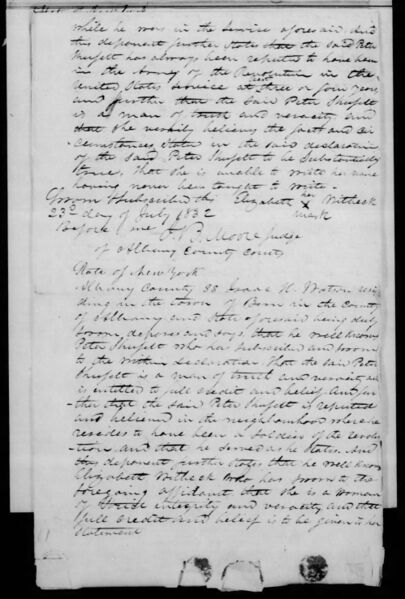 while he was in the service aforesaid. And
this deponent further states that the said Peter
Shufelt has always been reputed to have been
in the Army of the Revolution in the
United States service at three or four years
and further that the said Peter Shufelt
is a man of truth and veracity and
that she verily believes the facts and cir
cumstances stated in the said declaration
of the said Peter Shufelt to be substantially
true, that she is unable to write her name
having never been taught to write
Sworn & subscribed this Elizabeth her X mark Witbeck
23d day of July 1832
Before me
Moore Judge
of Albany County Courts
State of New York
Albany County SS Isaac H. Watson resi
ding in the town of Bern in the County
of Albany and state aforesaid being duly
sworn, deposes and says that he well knows
Peter Shufelt who has subscribed and sworn
to the within declaration that the said Peter
Shufelt is a man of truth and veracity and
is entitled to full credit and belief and fur
ther that the said Peter Shufelt is reputed
and believed in the neighbourhood where he
resides to have been a soldier of the revolu
tion and that he served as he states. And
this deponent further states that he well knows
Elizabeth Witbeck who has sworn to the
foregoing affidavit that she is a woman
of strict integrity and veracity and that
full credit and belief is to be given to her
statement